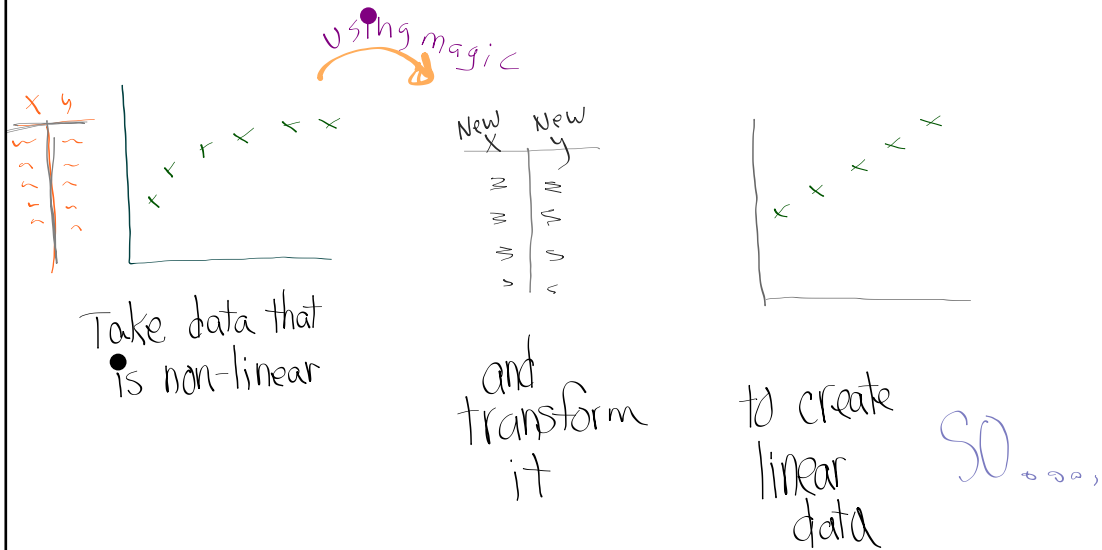 using magic
x y
New New
x y
Take data that
is non-linear
and
transform
it
to create
linear
data
SO....,